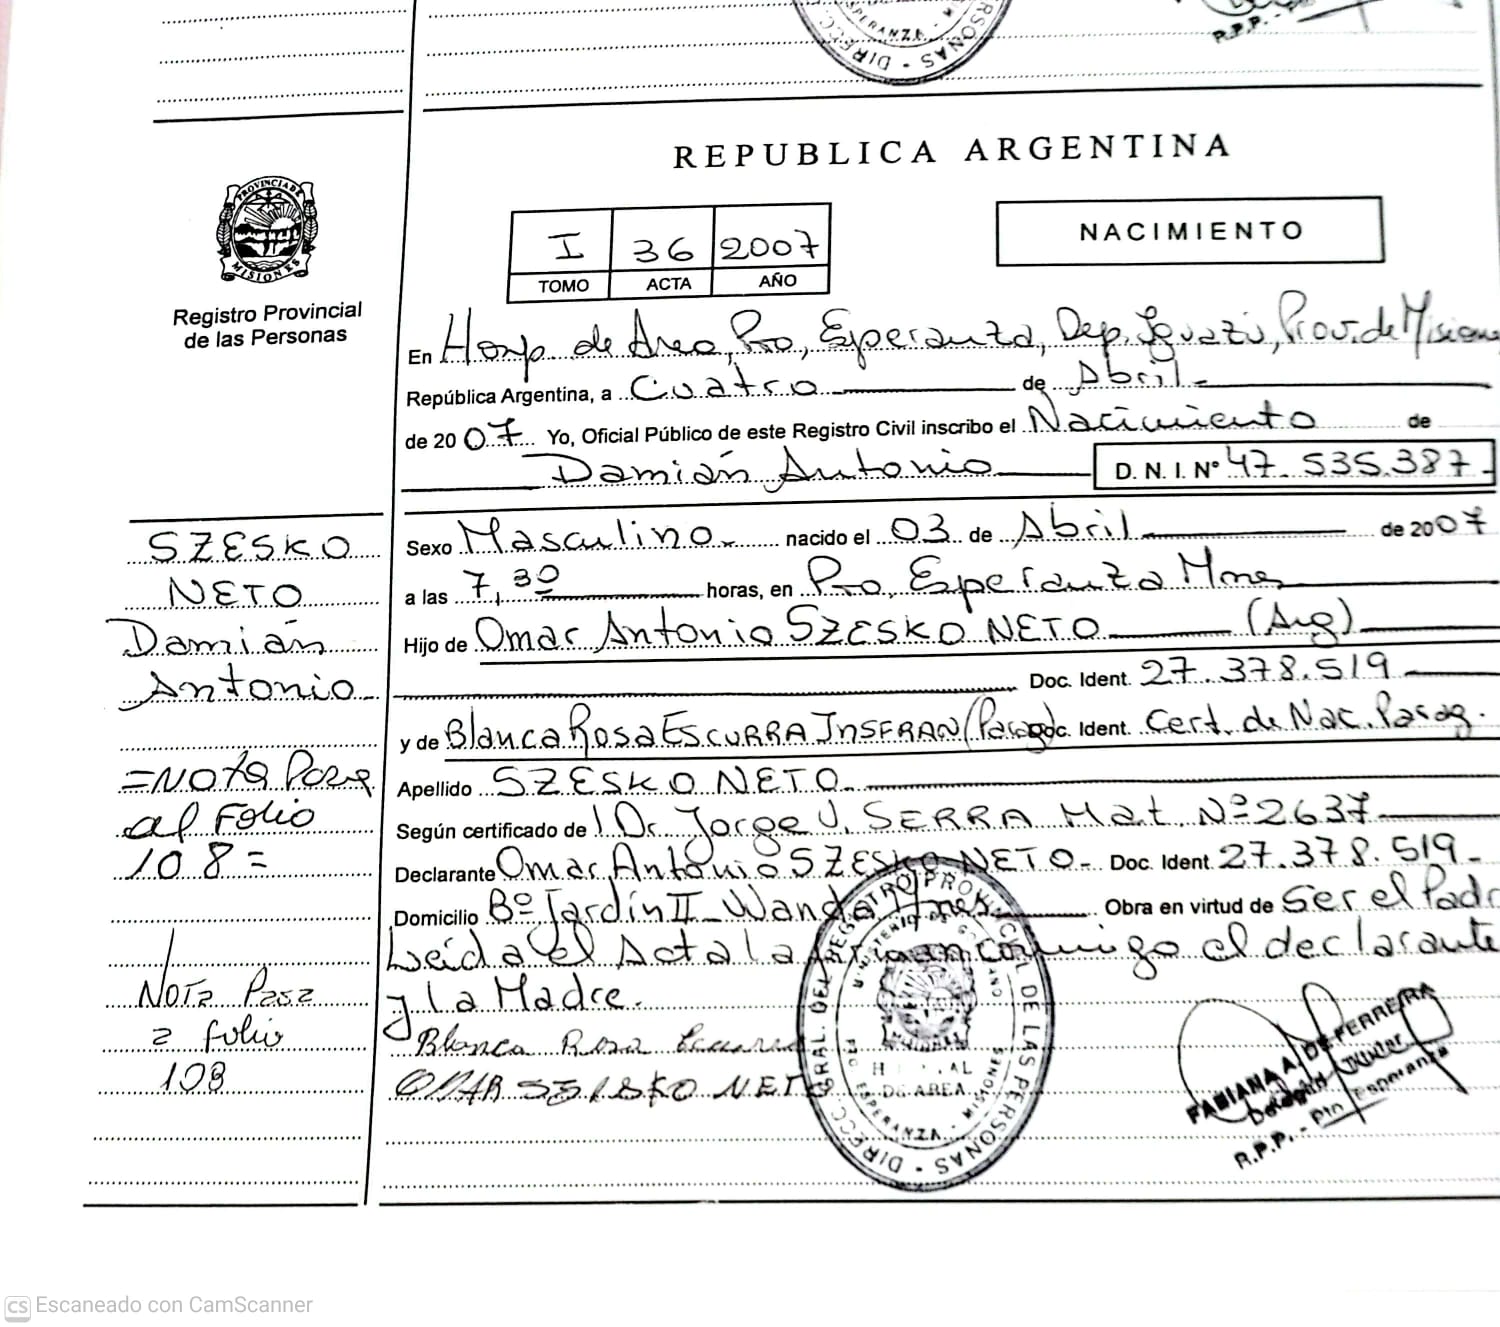 ESPERANZA - M
DIRECC
PERSONAS
R.P.P. -
PROVINCIA DE
MISIONES
Registro Provincial
de las Personas
REPUBLICA ARGENTINA
I 36 2007
TOMO ACTA AÑO
NACIMIENTO
En Hosp. de Area, Pto, Esperanza, Dep. Iguazú, Prov. de Misione
República Argentina, a Cuatro de Abril
de 2007 Yo, Oficial Público de este Registro Civil inscribo el Nacimiento de
Damián Antonio D. N. I. Nº 47.535.387
Sexo Masculino nacido el 03 de Abril de 2007
a las 7,30 horas, en Pto, Esperanza Mnes
Hijo de Omar Antonio SZESKO NETO (Arg)
Doc. Ident. 27.378.519
y de Blanca Rosa ESCURRA INSFRAN (Parag) Doc. Ident. Cert. de Nac. Parag.
Apellido SZESKO NETO
Según certificado de Dr. Jorge J. SERRA Mat. Nº 2637
Declarante Omar Antonio SZESKO NETO Doc. Ident. 27.378.519
Domicilio Bº Jardín II - Wanda Mnes Obra en virtud de Ser el Padr
Leída el Acta la firman conmigo el declarante
y la Madre.
Blanca Rosa Escurra
OMAR SZESKO NETO
SZESKO
NETO
Damián
Antonio
=NOTA Pasa
al FOLIO
108=
NOTA Pasa
a folio
108
DIRECC. GRAL. DEL REGISTRO PROVINCIAL DE LAS PERSONAS
MINISTERIO DE GOBIERNO
DE AREA
ESPERANZA - MISIONES
FABIANA A. DE FERREIRA
Delegada Titular
R.P.P. - Pto Esperanza
CS Escaneado con CamScanner